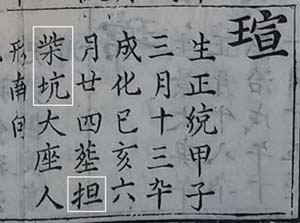 瑄
生正綂甲子
三月十三卒
成化己亥六
月廿四塟担
柴坑大座人
形南向